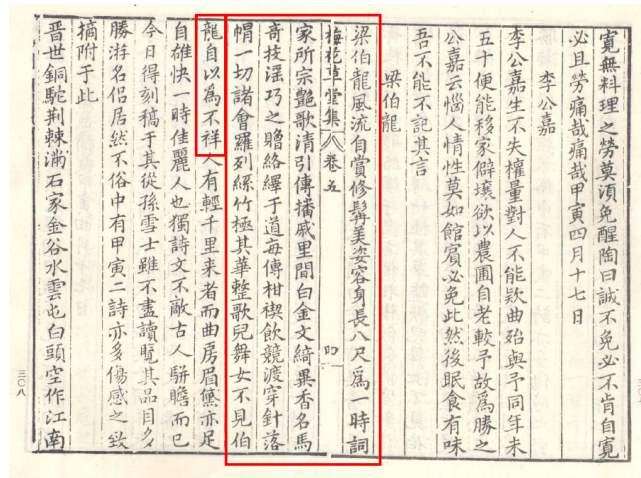 寬無料理之勞莫須免醒陶曰誠不免必不肯自寬
必且勞痛哉痛哉甲寅四月十七日
李公嘉
李公嘉生不失權量對人不能欵曲殆與予同年未
五十便能移家僻壤欲以農圃自老較予故爲勝之
公嘉云惱人情性莫如館賓必免此然後眠食有味
吾不能不記其言
梁伯龍
梁伯龍風流自賞修髯美姿容身長八尺爲一時詞
梅花草堂集 卷五
家所宗艷歌清引傳播戚里間白金文綺異香名馬
奇技滛巧之贈絡繹于道每傳柑禊飲競渡穿針落
帽一切諸會羅列絲竹極其華整歌兒舞女不見伯
龍自以為不祥人有輕千里来者而曲房眉黛亦足
自雄快一時佳麗人也獨詩文不敵古人駢贍而已
今日得刻稿于其從孫雪士雖不盡讀覽其品目多
勝游名侶居然不俗中有甲寅二詩亦多傷感之致
摘附于此
晋世銅駝荆棘滿石家金谷水雲屯白頭空作江南
三〇八